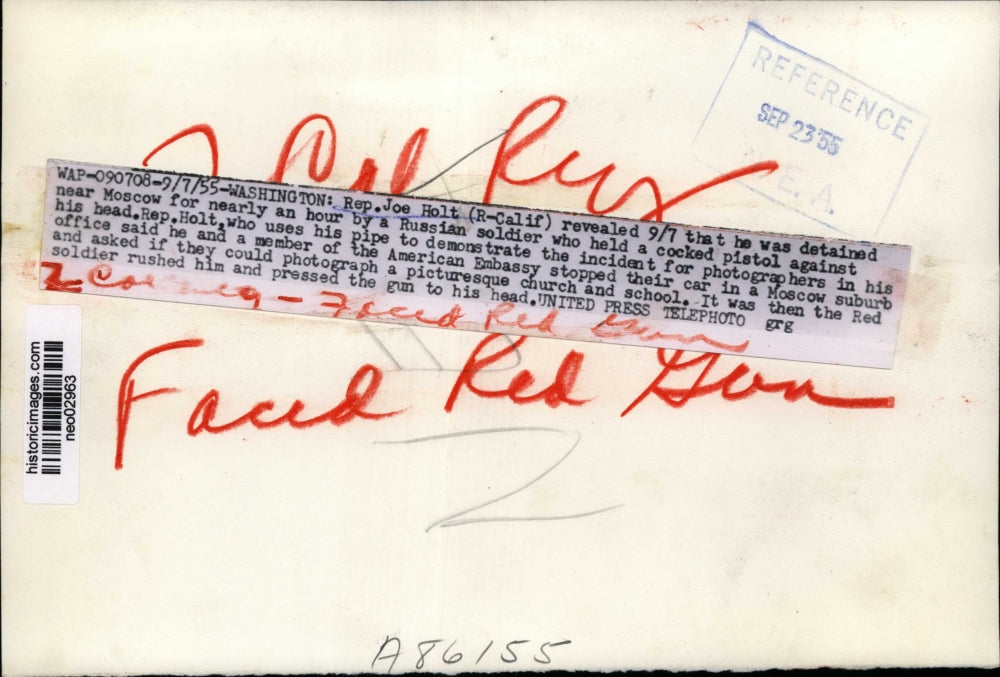 REFERENCE
SEP 23 '55
E. A.
2 Col
WAP-090708-9/7/55-WASHINGTON: Rep.Joe Holt (R-Calif) revealed 9/7 that he was detained
near Moscow for nearly an hour by a Russian soldier who held a cocked pistol against
his head.Rep.Holt,who uses his pipe to demonstrate the incident for photographers in his
office said he and a member of the American Embassy stopped their car in a Moscow suburb
and asked if they could photograph a picturesque church and school. It was then the Red
soldier rushed him and pressed the gun to his head.UNITED PRESS TELEPHOTO grg
2 - Faced Red Gun
Faced Red Gun
2
A86155
historicimages.com
neo02963